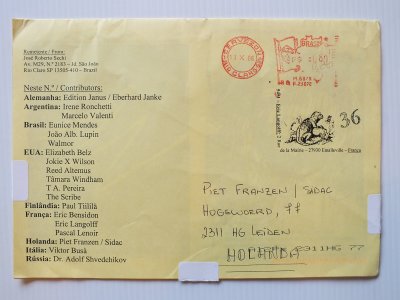 Remetente / From:
José Roberto Sechi
Av. M29, N.º 2183 - Jd. São João
Rio Claro SP 13505-410 - Brazil
Neste N.º / Contributors:
Alemanha: Edition Janus / Eberhard Janke
Argentina: Irene Ronchetti
Marcelo Valenti
Brasil: Eunice Mendes
João Alb. Lupin
Walmor
EUA: Elizabeth Belz
Jokie X Wilson
Reed Altemus
Tâmara Windham
T. A. Pereira
The Scribe
Finlândia: Paul Tiililä
França: Eric Bensidon
Eric Langolff
Pascal Lenoir
Holanda: Piet Franzen / Sidac
Itália: Viktor Busà
Rússia: Dr. Adolf Shvedchikov
BRASIL
36
de la Mairie - 27930 Emalleville - France
PIET FRANZEN / SIDAC
HOGEWOERD, 77
2311 HG LEIDEN
HOLANDA
2311HG 77